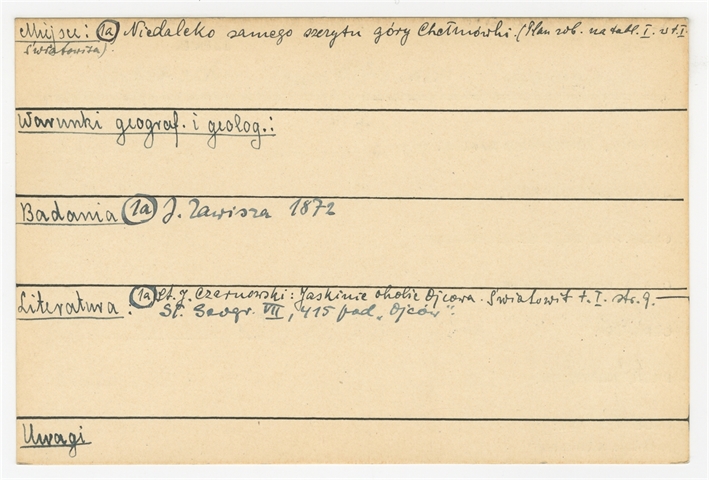 Miejsce: (1a) Niedaleko samego szczytu góry Chełmówki. (Plan zob. na tabl. I. w t. I
Światowita).
Warunki geograf. i geolog.:
Badania (1a) J. Zawisza 1872
Literatura: (1a) St. J. Czarnowski: Jaskinie okolic Ojcowa. Światowit t. I. str. 9.—
Sł. Geogr. VII, 415 pod „Ojców".
Uwagi